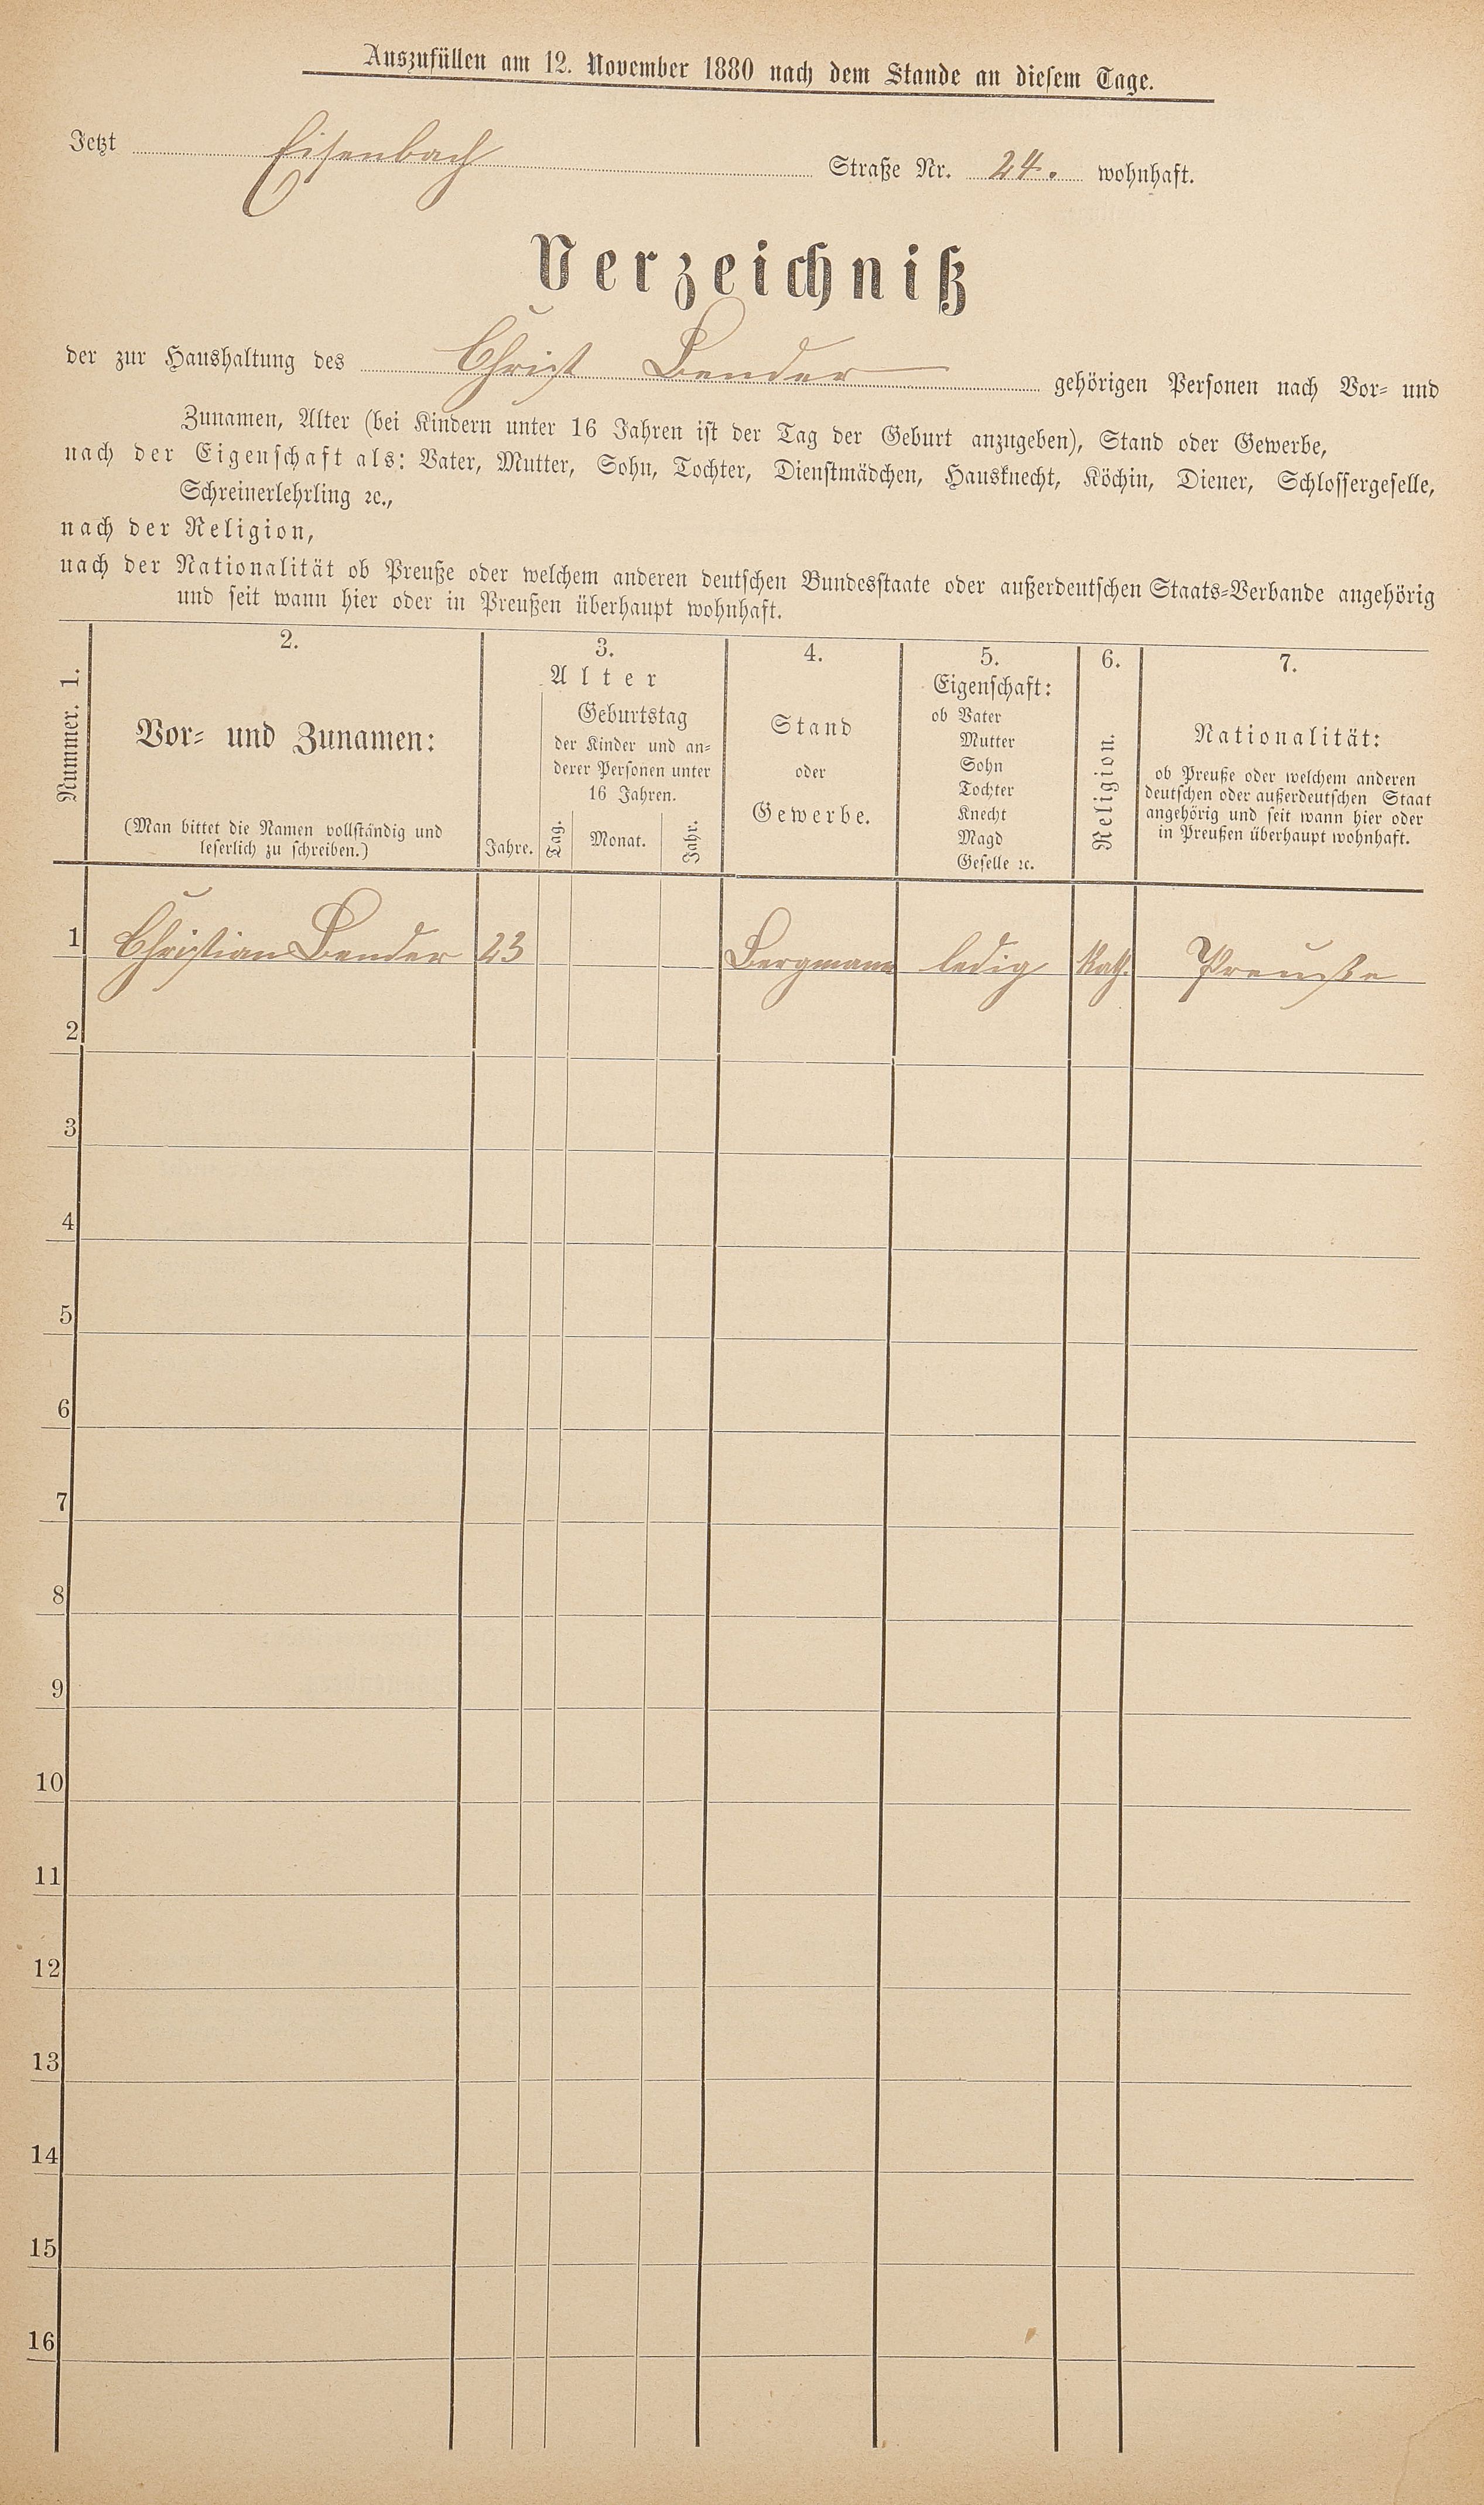 Auszufüllen am 12. November 1880 nach dem Stande an diesem Tage.
Jetzt Eisenbach Straße Nr. 24. wohnhaft.
Verzeichniß
der zur Haushaltung des Christ Bender gehörigen Personen nach Vor- und
Zunamen, Alter (bei Kindern unter 16 Jahren ist der Tag der Geburt anzugeben), Stand oder Gewerbe,
nach der Eigenschaft als: Vater, Mutter, Sohn, Tochter, Dienstmädchen, Hausknecht, Köchin, Diener, Schlossergeselle,
Schreinerlehrling ꝛc.,
nach der Religion,
nach der Nationalität ob Preuße oder welchem anderen deutschen Bundesstaate oder außerdeutschen Staats-Verbande angehörig
und seit wann hier oder in Preußen überhaupt wohnhaft.
Nummer. 1.
2.
Vor- und Zunamen:
(Man bittet die Namen vollständig und
leserlich zu schreiben.)
3.
Alter
Jahre.
Geburtstag
der Kinder und an-
derer Personen unter
16 Jahren.
Tag. Monat. Jahr.
4.
Stand
oder
Gewerbe.
5.
Eigenschaft:
ob Vater
Mutter
Sohn
Tochter
Knecht
Magd
Geselle ꝛc.
6.
Religion.
7.
Nationalität:
ob Preuße oder welchem anderen
deutschen oder außerdeutschen Staat
angehörig und seit wann hier oder
in Preußen überhaupt wohnhaft.
1 Christian Bender 23 Bergmann ledig Kath. Preuße
2
3
4
5
6
7
8
9
10
11
12
13
14
15
16